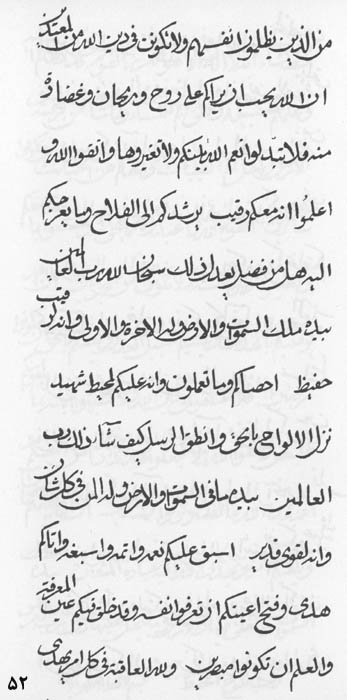 من الذين يظلمون انفسهم ولا تكونن في دين الله من المعتدين
ان الله يحب ان يريكم على روح وريحان وغضاة
منه فلا تبدلوا نعم الله بينكم ولا تغيروها واتقوا الله و
اعلموا انه معكم رقيب يرشدكم الى الفلاح وما يعرجكم
اليه هل من فضل بعد ذلك سبحان الله رب العالمين
بيده ملك السموات والارض وله الاخرة والاولى وانه لرقيب
حفيظ احصاكم وما تعملون وانه عليكم لمحيط شهيد
نزل الالواح بالحق وانطق الرسل كيف شاء ذلك رب
العالمين بيده ما في السموات والارض وله المن في كل شان
وانه لقوي قدير اسبق عليكم نعمه واتمه واسبغه واتاكم
هدى وفتح اعينكم ان تعرفوا نفسه وقد خلق فيكم عين المعرفة
والعلم ان تكونوا مبصرين ولله العاقبة في كل امر يهدي
۵۲